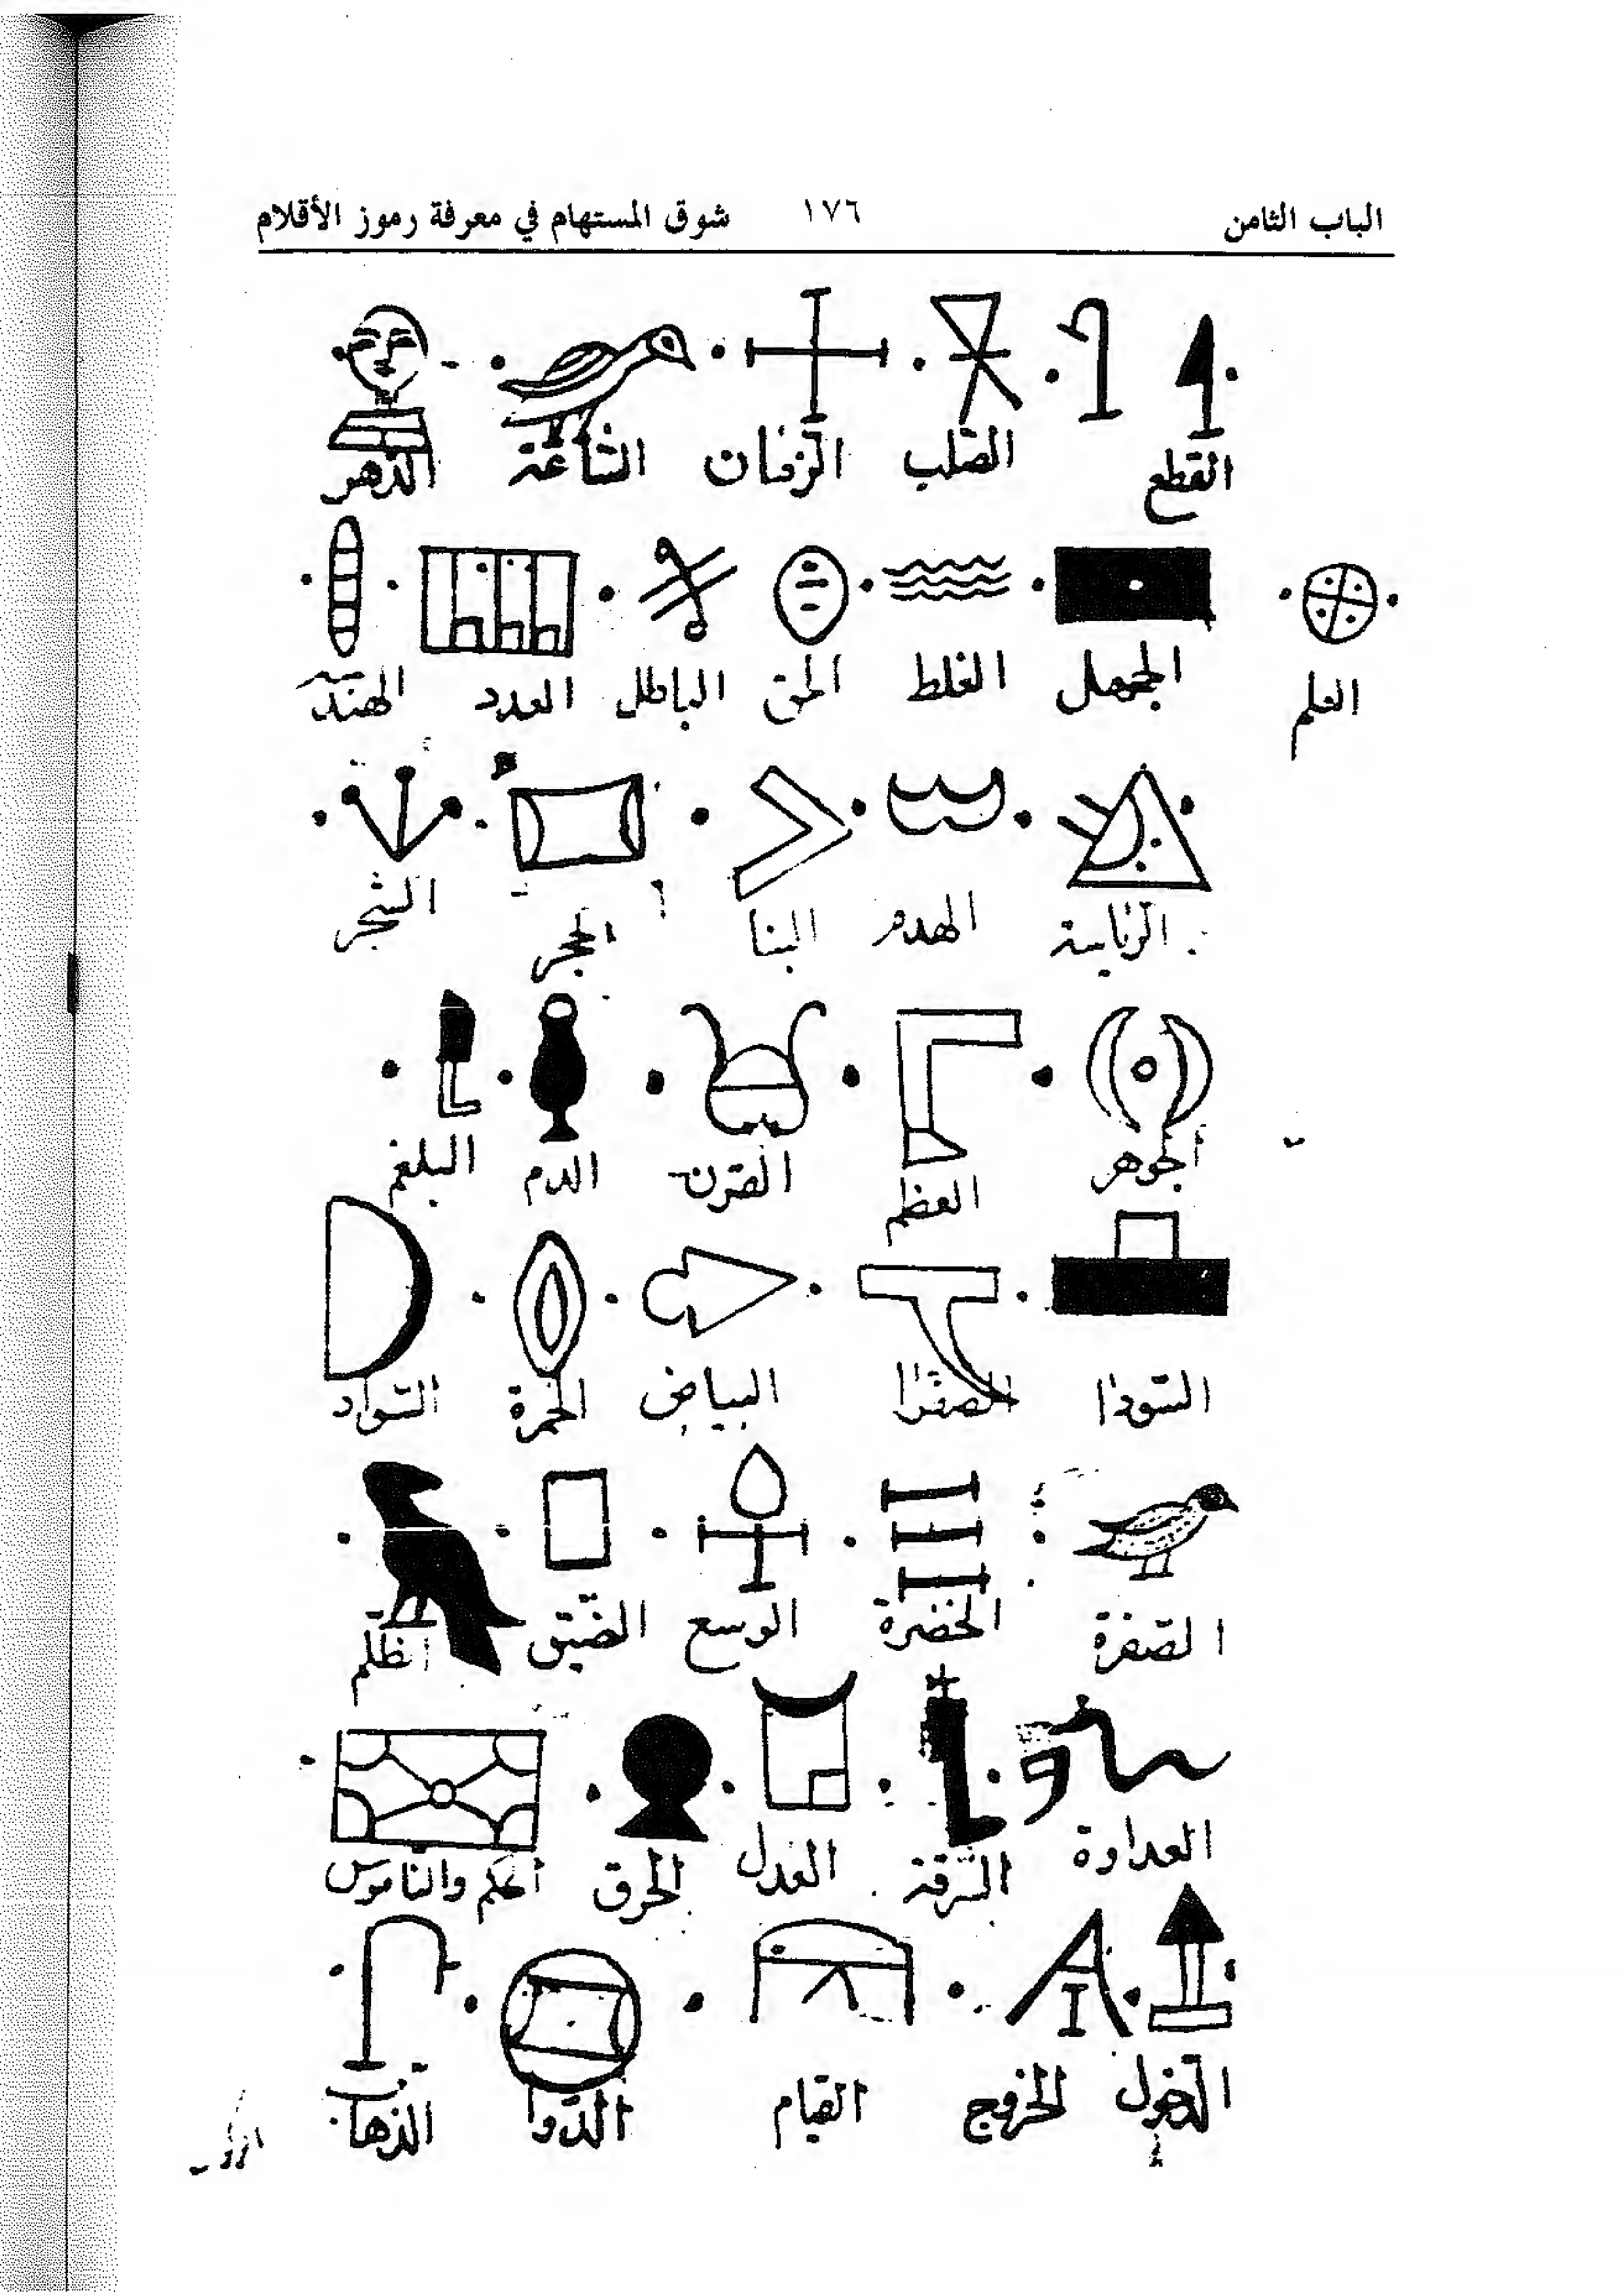 الباب الثامن ١٧٦ شوق المستهام في معرفة رموز الأقلام
القطع الصلب الزمان الساعة الدهر
العلم الجهل الغلط الحق الباطل العدد
الهدم البنا الحجر الشجر
الجوهر العظم القرن الدم البلغم
السودا الصفرا البياض الحمرة السواد
الصفرة الخضرة الوسع الضيق الظلم
العداوة العدل الحرق والناموس
الدخول الخروج القيام الدوا الذهاب